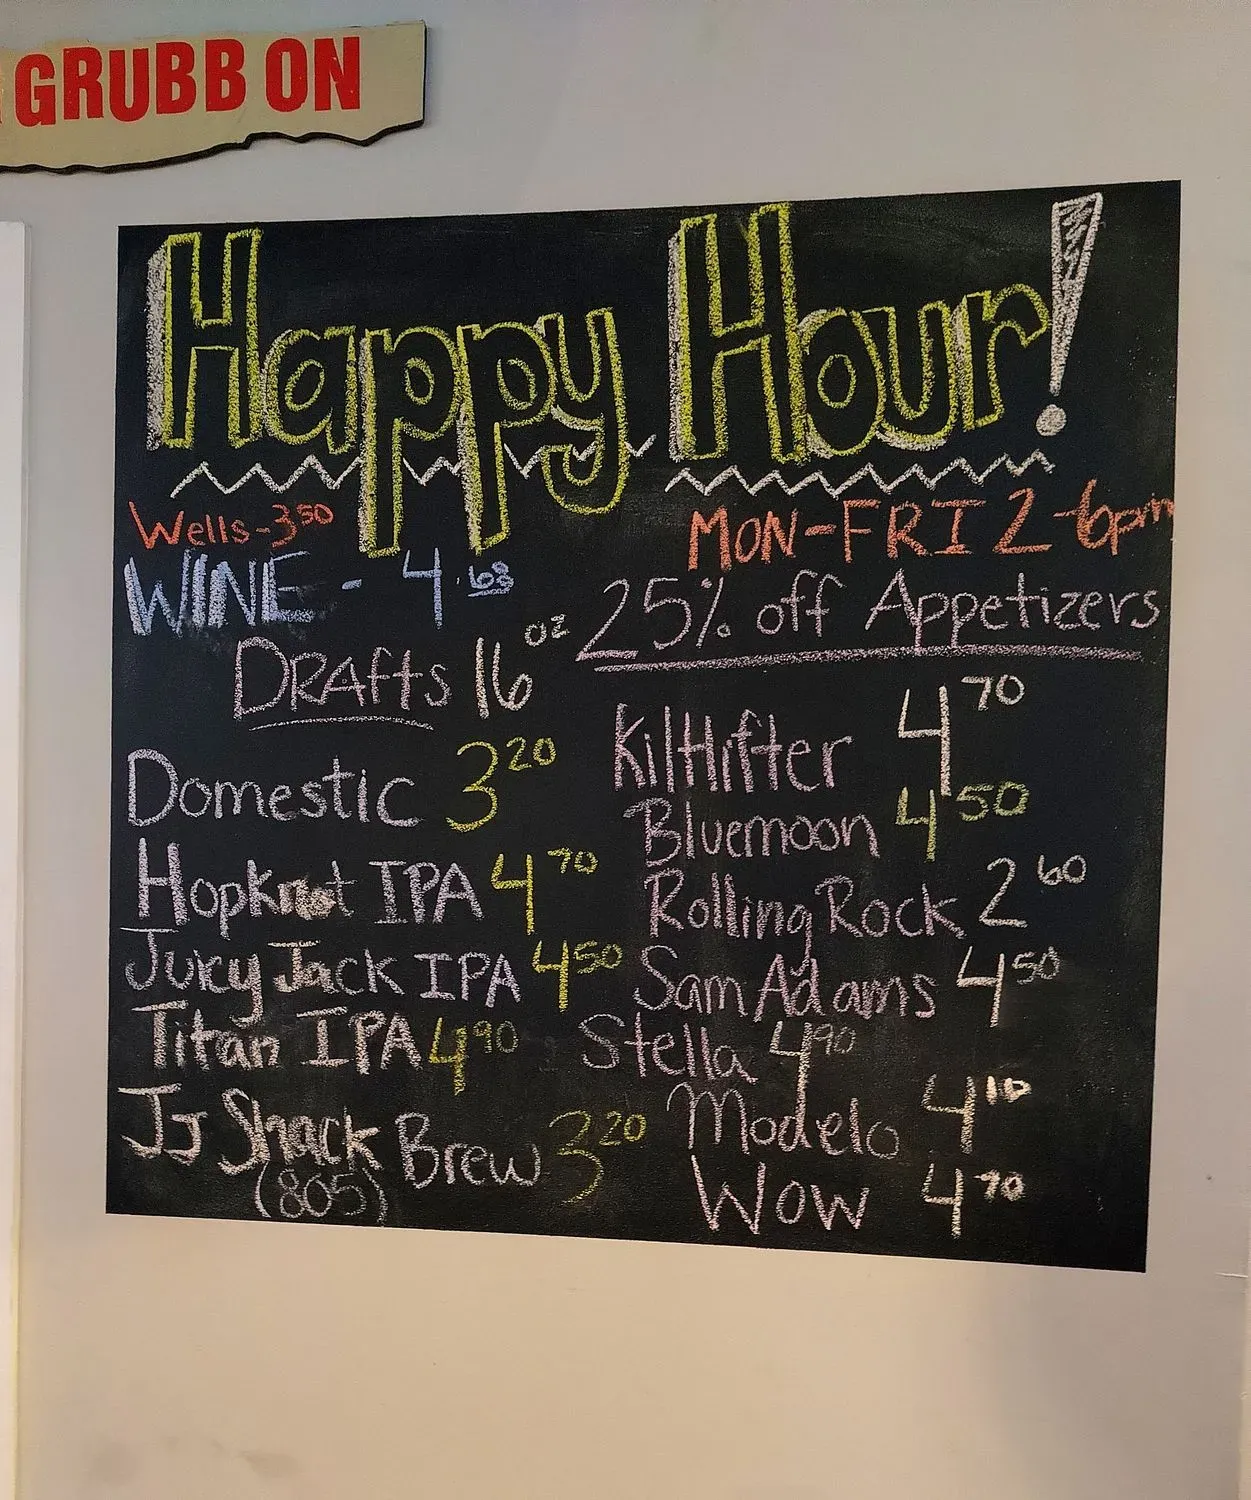 GRUBB ON
Happy Hour!
Wells-3.50
WINE - 4.63
MON-FRI 2-6pm
25% off Appetizers
DRAfts 16 oz
Domestic 3 20
Hopknot IPA 4 70
Juicy Jack IPA 4 50
Titan IPA 4 90
JJ Shack Brew 3 20
(805)
Kiltlifter 4 70
Bluemoon 4 50
Rolling Rock 2 60
Sam Adams 4 50
Stella 4 90
Modelo 4 10
Wow 4 70